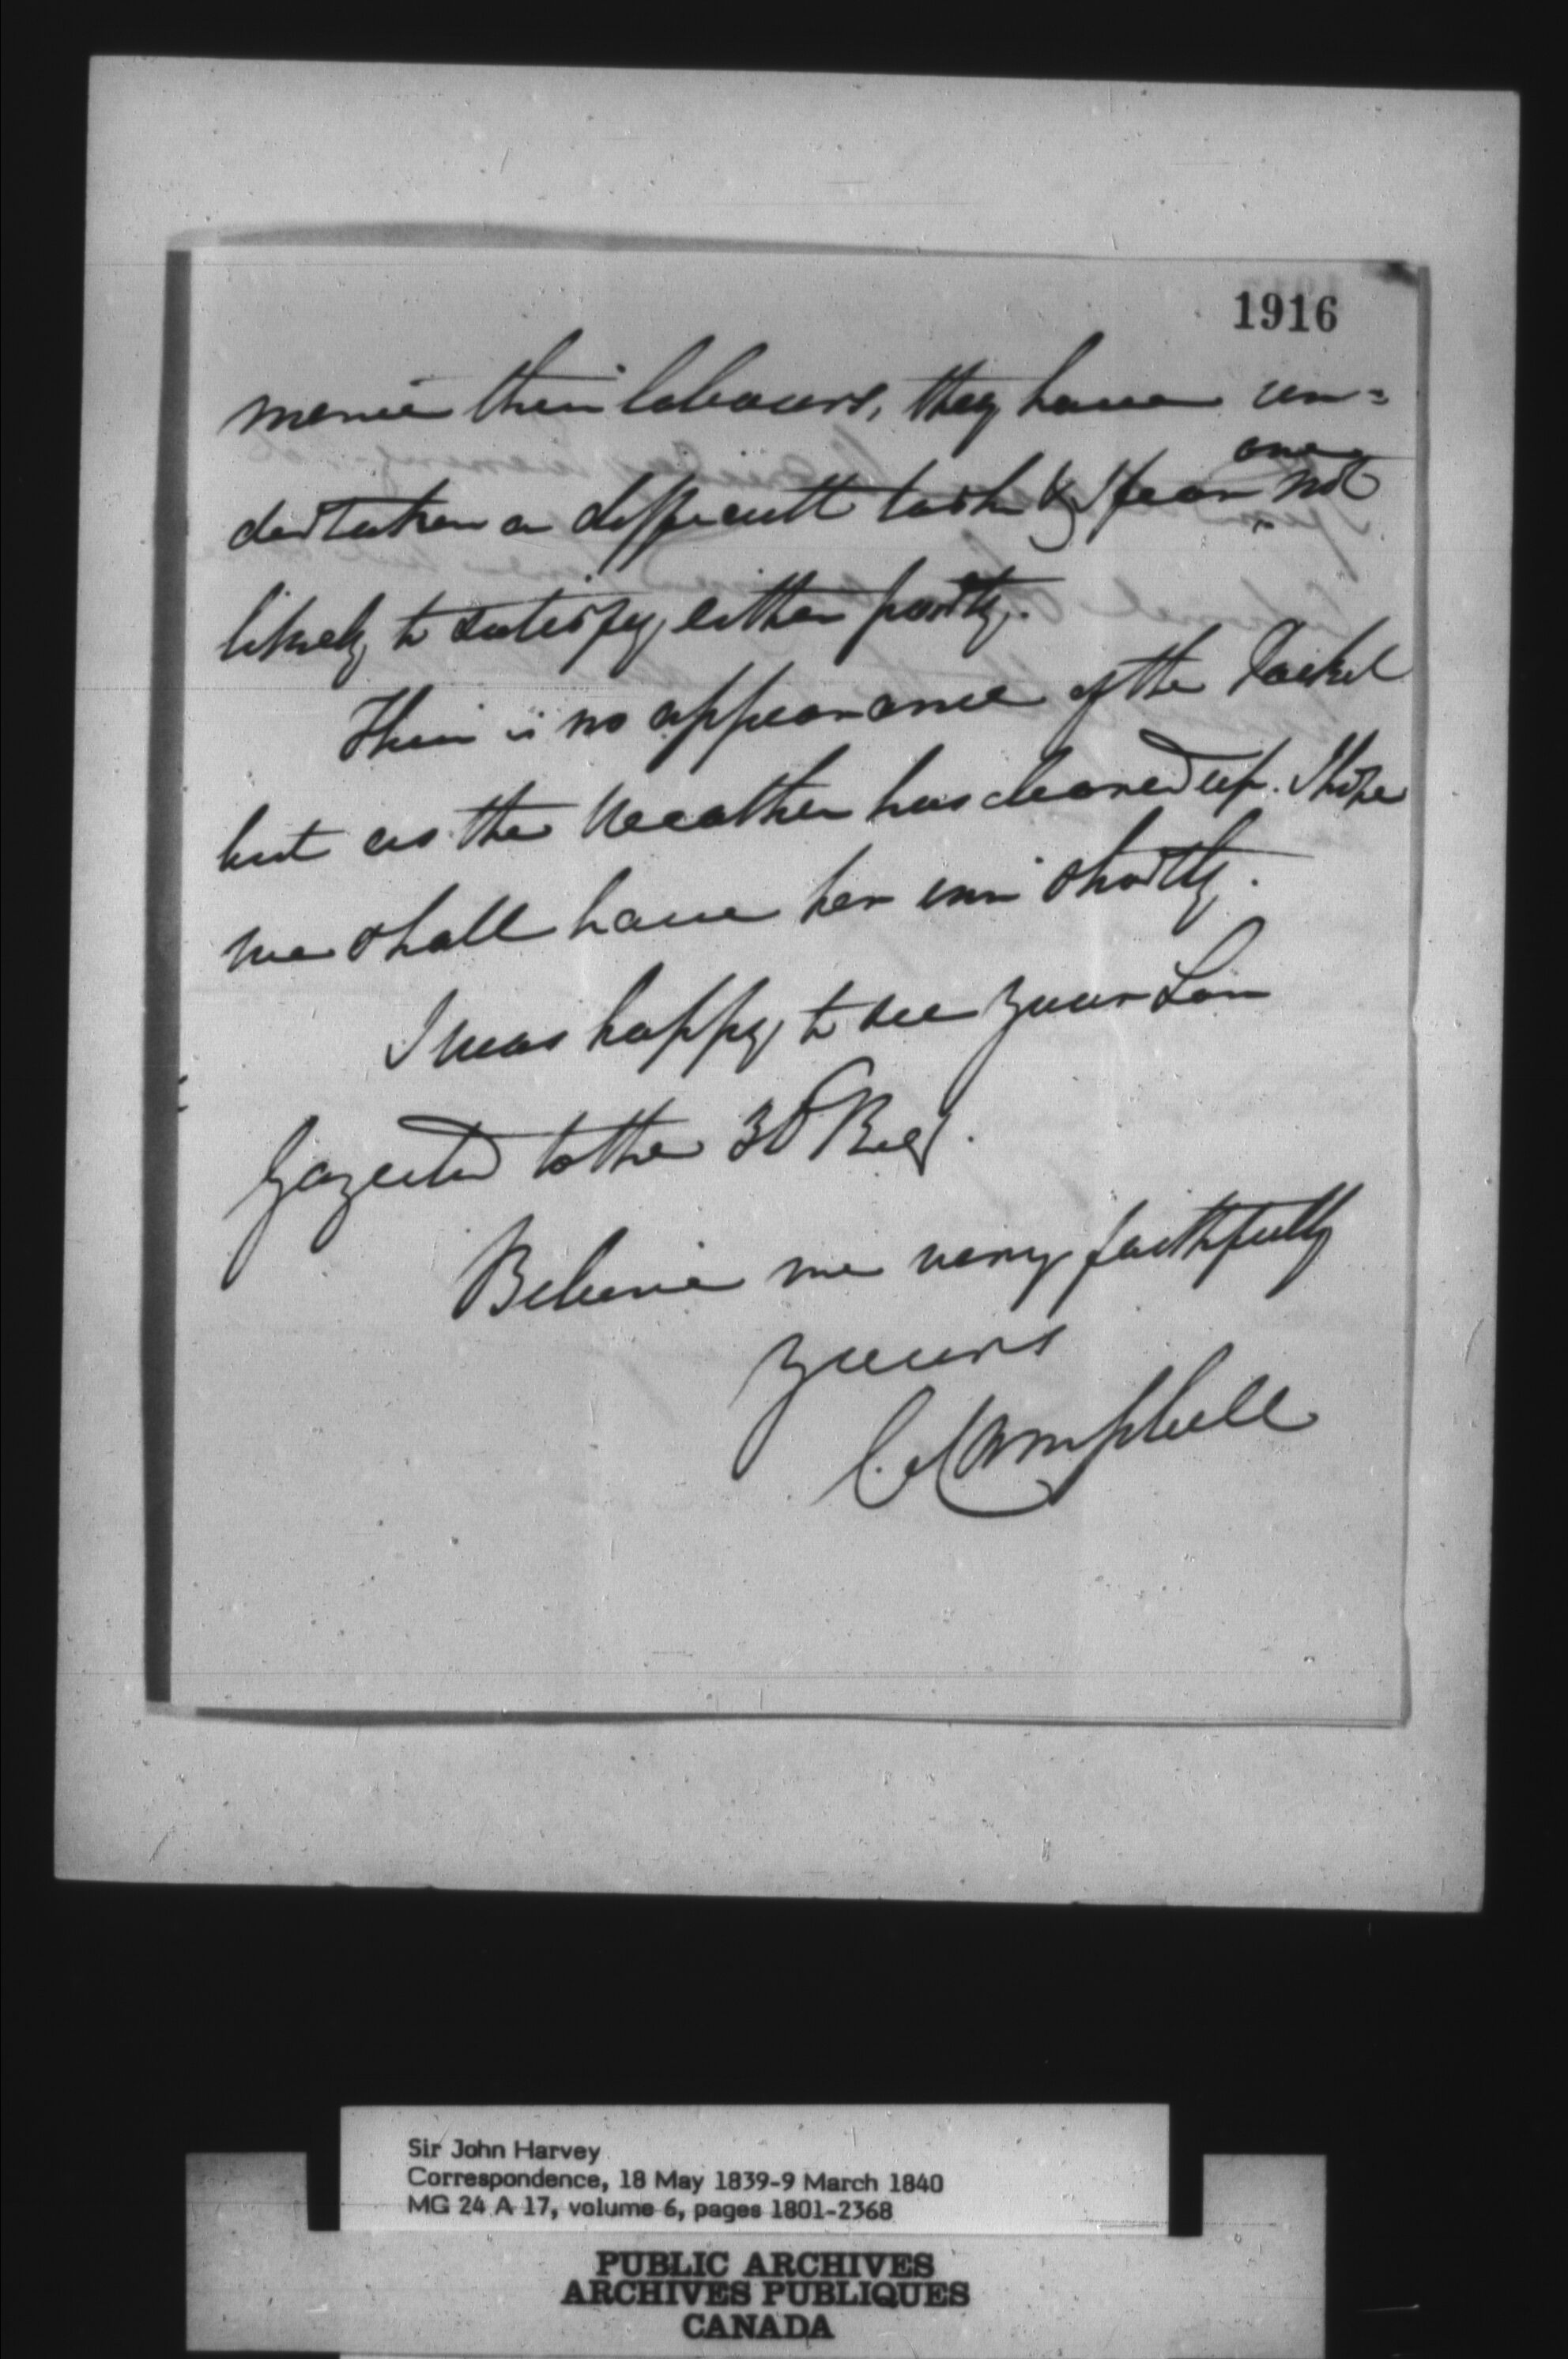 1916
mence their labours, they have un=
dertaken a difficult task & I fear one not
likely to satisfy either party.
There is no appearance of the Packet
but as the Weather has cleared up. I hope
we shall have her inn shortly.
I was happy to see your Son
Gazetted to the Reg.
Believe me very faithfully
yours
C. Campbell
Sir John Harvey
Correspondence, 18 May 1839-9 March 1840
MG 24 A 17, volume 6, pages 1801-2368
PUBLIC ARCHIVES
ARCHIVES PUBLIQUES
CANADA